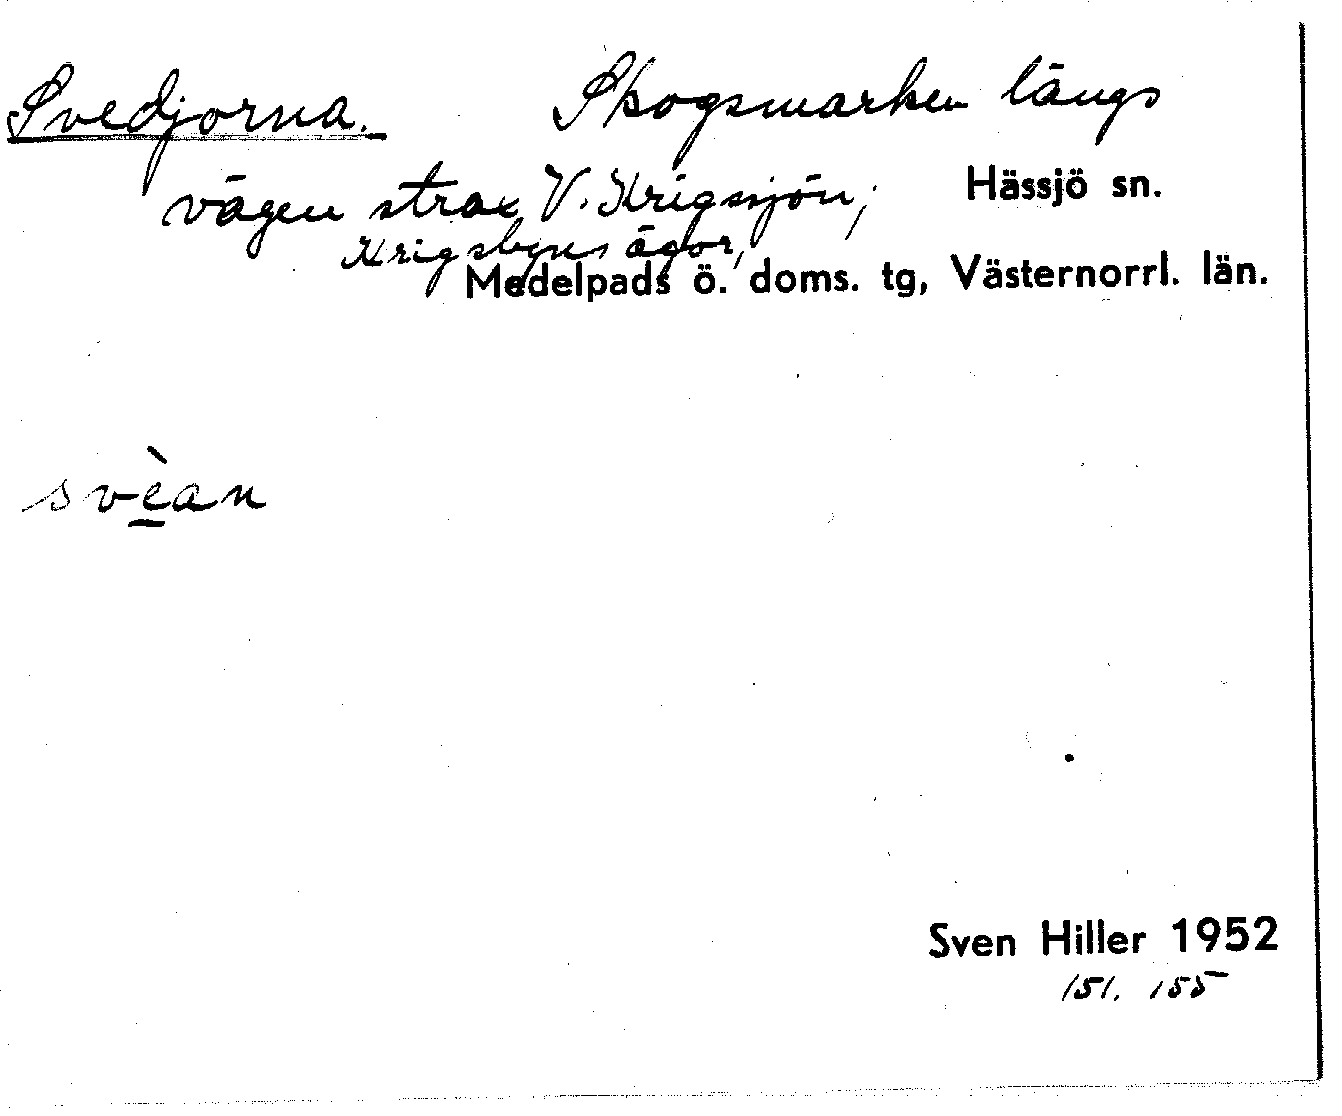 Svedjorna. Skogsmarken längs
vägen strax V. Krigsjön; Hässjö sn.
Krigsbyns ägor,
Medelpads ö. doms. tg, Västernorrl. län.
svèan
Sven Hiller 1952
151. 155